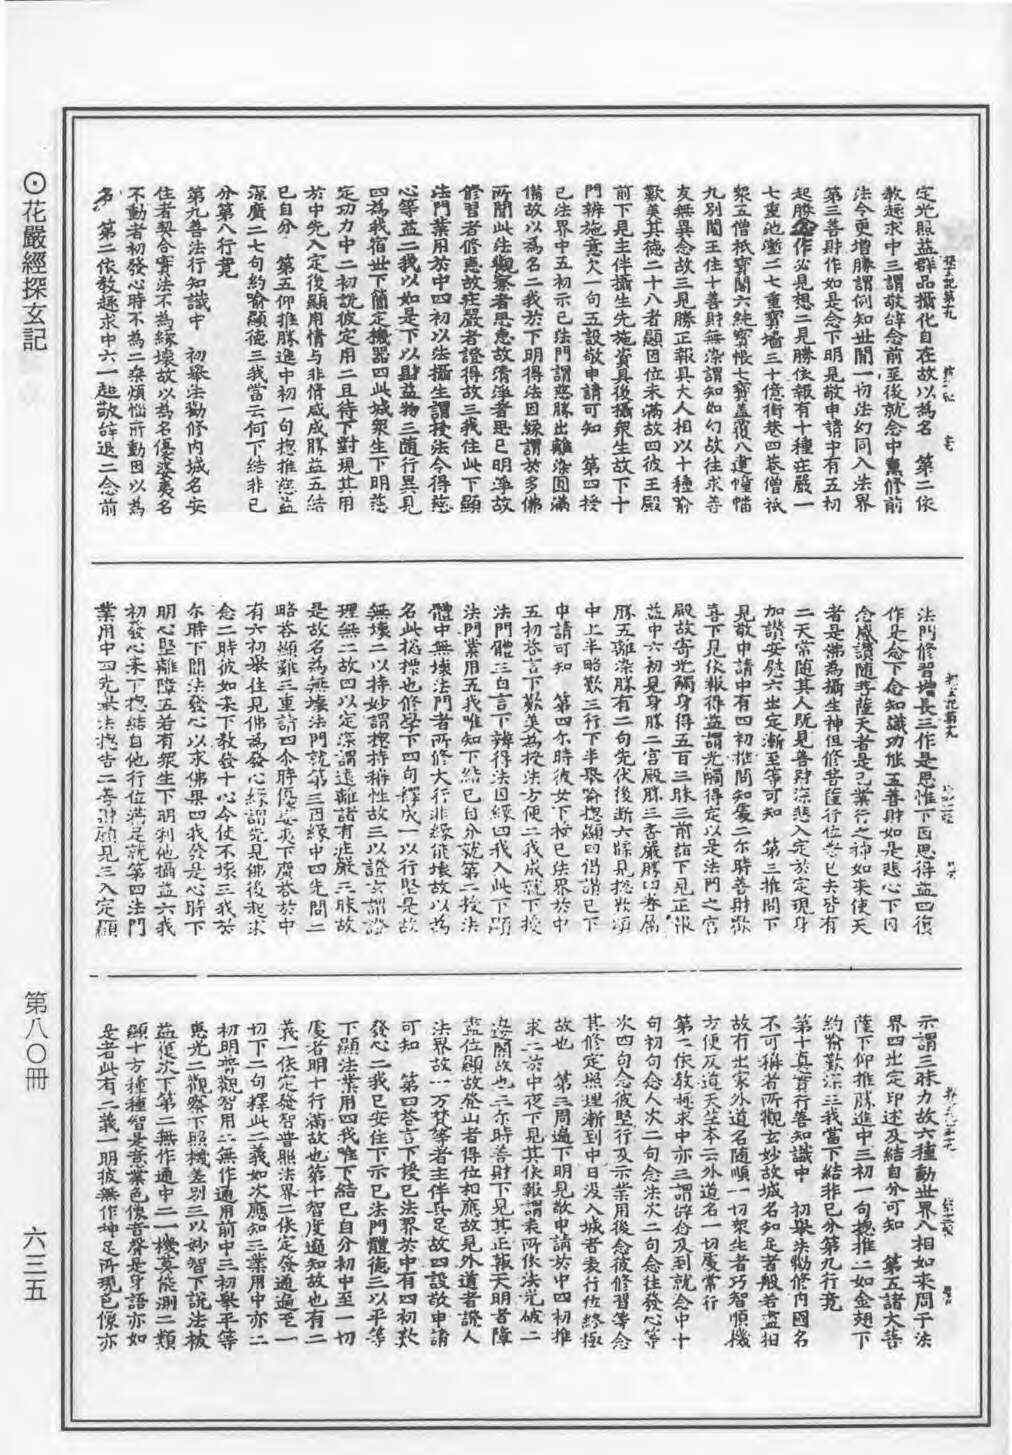 ⊙花嚴經探玄記
第八〇冊
六三五
定光照益群品攝化自在故以為名　第二依
教趣求中三謂敬辭念前至後就念中熏修前
法令更增勝謂例知世間一切法幻同入法界
第三善財作如是念下明見敬申請中有五初
起勝念作必見想二見勝依報有十種莊嚴一
七重池壍二七重寶墻三十億衖巷四菴僧祇
衆五僧祇寶閣六純寶帳七寶蓋覆八建幢幡
九別閣王住十善財無染謂知如幻故往求善
友無異念故三見勝正報具大人相以十種喻
歎美其德二十八者顯因位未滿故四彼王殿
前下是主伴攝生先施資具後攝衆生故下十
門辨施意欠一句五設敬申請可知　第四授
己法界中五初示己法門謂慈勝出離染圓滿
備故以為名二我於下明得法因緣謂於多佛
所聞此法觀察者思惠故清淨者思已明淨故
修習者修惠故莊嚴者證得故三我住此下顯
法門業用於中四初以法攝生謂授法令得慈
心等益二我以如是下以財益物三隨行異見
四為我宿世下簡定機器四此城衆生下明慈
定功力中二初說彼定用二且待下對現其用
於中先入定後顯用情与非情咸成勝益五結
已自分　第五仰推勝進中初一句揔推慈益
深廣二七句約喻顯德三我當云何下結非已
分第八行竟
第九善法行知識中　初舉法勸修内城名安
住者契合實法不為緣壞故以為名優婆夷名
不動者初發心時不為二乘煩惱所動因以為
名　第二依教趣求中六一起敬辞退二念前
法門修習增長三作是思惟下因思得益四復
作是念下念知識功能五善財如是悲心下因
念感讚隨菩薩天者是己業行之神如來使天
者是佛為攝生神但修菩薩行位登已去皆有
二天常隨其人既見善財深悲入定於定現身
加讚安慰六出定漸至等可知　第三推問下
見敬申請中有四初推問知處二尒時善財詣
喜下見依報得益謂光觸得定以是法門之宮
殿故寄光觸身得五百三昧三前詣下見正報
益中六初見身勝二宮殿勝三香嚴勝四眷屬
勝五離染勝有二句先伏後斷六歸見揔歎頌
中上半略歎三行下半舉喻揔顯四偈讚已下
申請可知　第四尒時彼女下授己法界於中
五初答言下歎美為授法方便二我成就下授
法門體三白言下辨得法因緣四我入此下顯
法門業用五我唯知下結已自分就第二授法
體中無壞法門者所修大行非緣能壞故以為
名此揔標也修學下四句釋成一以行堅是故
無壞二以持妙謂揔持稱性故三以證玄謂證
理無二故四以定深謂遠離諸有莊嚴三昧故
是故名為無壞法門就第三因緣中四先問二
略答顯難三重請四尒時優婆夷下廣答於中
有六初舉往見佛為發心緣謂先見佛後起求
念二時彼如來下教發十心令使不壞三我於
尒時下聞法發心以求佛果四我發是心時下
明心堅離障五若有衆生下明利他攝益六我
初發心来下揔結自他行位滿足就第四法門
業用中四先入法揔告二善財願見三入定顯
示謂三昧力故六種動世界八相如來周于法
界四出定印述及結自分可知　第五諸大菩
薩下仰推勝進中三初一句揔推二如金翅下
約喻歎深三我當下結非己分第九行竟
第十真實行善知識中　初舉法勸修内國名
不可稱者所觀玄妙故城名知足者般若盡相
故有出家外道名隨順一切衆生者巧智順機
方便反道天竺本云外道名一切處常行
第二依教趣求中亦三謂辭念及到就念中十
句初句念人次二句念法次二句念往發心等
次四句念彼堅行及示業用後念彼修習等念
其修定照理漸到中日没入城者表行位終極
故也　第三周遍下明見敬申請於中四初推
求二於中夜下見其依報謂表所依法先破二
邊闇故也三尒時善財下見其正報天明者障
盡位顯故登山者得位相應故見外道者證人
法界故一万梵等者主伴具足故四設敬申請
可知　第四答言下授己法界於中有四初歎
發心二我已安住下示己法門體德三以平等
下顯法業用四我唯下結已自分初中至一切
處者明十行滿故也第十智度遍知故也有二
義一依定發智普照法界二依定發通遍至一
切下二句釋此二義如次應知三業用中亦二
初明普觀智用二無作通用前中三初舉平等
惠光二觀察下照機差別三以妙智下說法被
益復次下第二無作通中二一機莫能測二類
顯十方種種智是意業色像音聲是身語亦如
是者此有二義一明彼無作神足所現色像亦